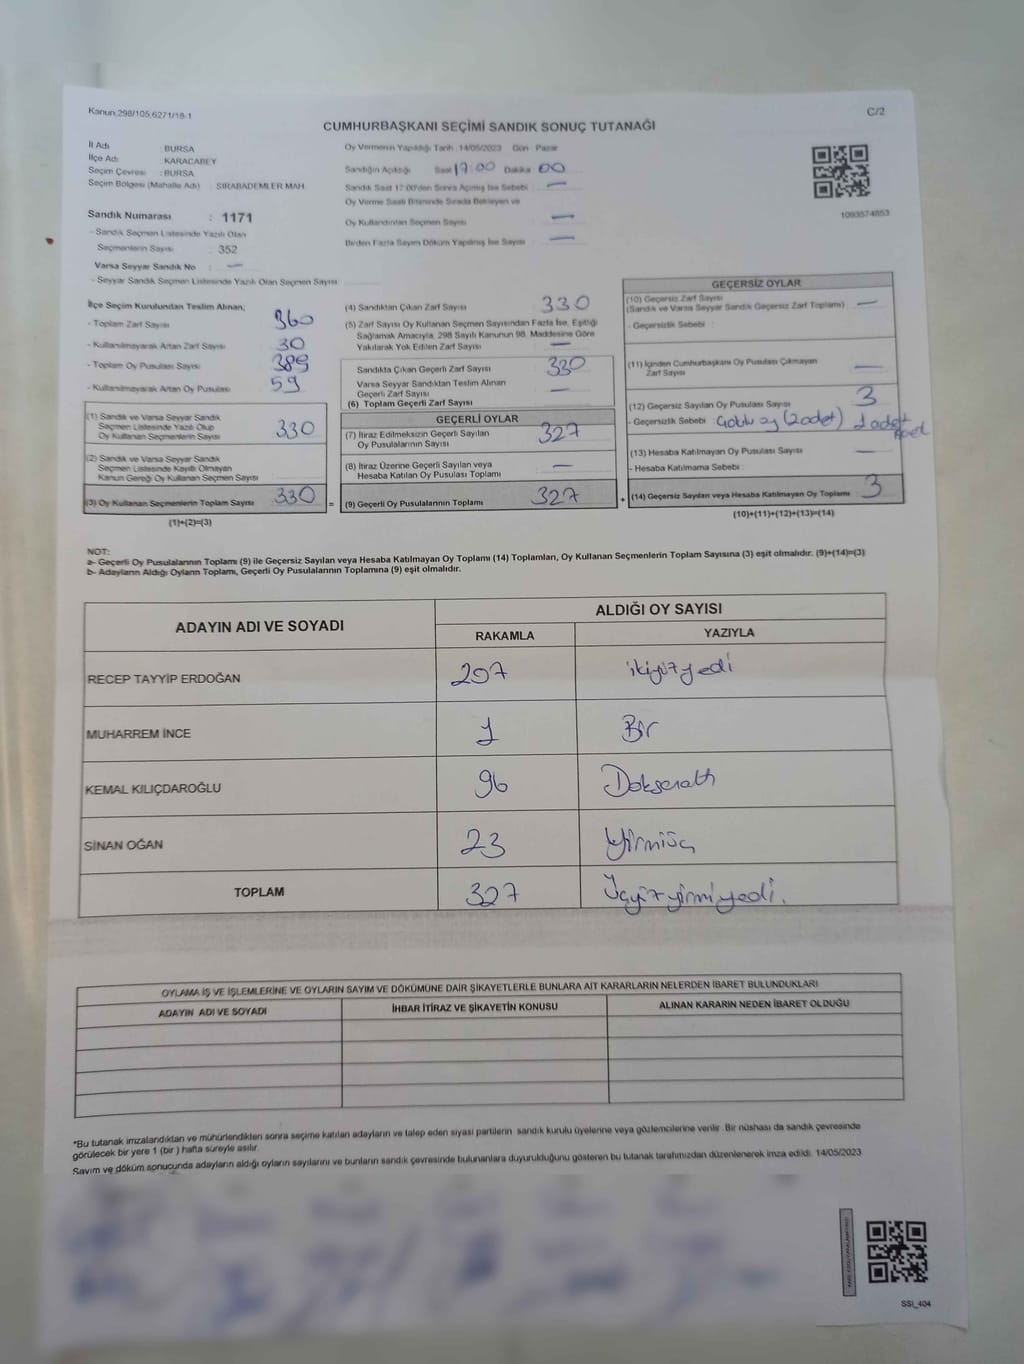 Kanun.298/105,6271/18-1
C/2
CUMHURBAŞKANI SEÇİMİ SANDIK SONUÇ TUTANAĞI
İl Adı : BURSA
İlçe Adı : KARACABEY
Seçim Çevresi : BURSA
Seçim Bölgesi (Mahalle Adı) : SIRABADEMLER MAH.
Sandık Numarası : 1171
- Sandık Seçmen Listesinde Yazılı Olan
Seçmenlerin Sayısı : 352
Varsa Seyyar Sandık No : —
- Seyyar Sandık Seçmen Listesinde Yazılı Olan Seçmen Sayısı
Oy Vermenin Yapıldığı Tarih : 14/05/2023 Gün : Pazar
Sandığın Açıldığı Saat 17:00 Dakika 00
Sandık Saat 17:00'den Sonra Açılmış İse Sebebi : —
Oy Verme Saati Bitiminde Sırada Bekleyen ve
Oy Kullandırılan Seçmen Sayısı —
Birden Fazla Sayım Döküm Yapılmış İse Sayısı —
1093574853
İlçe Seçim Kurulundan Teslim Alınan;
- Toplam Zarf Sayısı 360
- Kullanılmayarak Artan Zarf Sayısı 30
- Toplam Oy Pusulası Sayısı 389
- Kullanılmayarak Artan Oy Pusulası 59
(1) Sandık ve Varsa Seyyar Sandık
Seçmen Listesinde Yazılı Olup
Oy Kullanan Seçmenlerin Sayısı 330
(2) Sandık ve Varsa Seyyar Sandık
Seçmen Listesinde Kayıtlı Olmayan
Kanun Gereği Oy Kullanan Seçmen Sayısı
(3) Oy Kullanan Seçmenlerin Toplam Sayısı 330 =
(1)+(2)=(3)
(4) Sandıktan Çıkan Zarf Sayısı 330
(5) Zarf Sayısı Oy Kullanan Seçmen Sayısından Fazla İse, Eşitliği
Sağlamak Amacıyla, 298 Sayılı Kanunun 98. Maddesine Göre
Yakılarak Yok Edilen Zarf Sayısı —
Sandıkta Çıkan Geçerli Zarf Sayısı 330
Varsa Seyyar Sandıktan Teslim Alınan
Geçerli Zarf Sayısı —
(6) Toplam Geçerli Zarf Sayısı
GEÇERLİ OYLAR
(7) İtiraz Edilmeksizin Geçerli Sayılan
Oy Pusulalarının Sayısı 327
(8) İtiraz Üzerine Geçerli Sayılan veya
Hesaba Katılan Oy Pusulası Toplamı —
(9) Geçerli Oy Pusulalarının Toplamı 327 +
GEÇERSİZ OYLAR
(10) Geçersiz Zarf Sayısı
(Sandık ve Varsa Seyyar Sandık Geçersiz Zarf Toplamı) —
- Geçersizlik Sebebi :
(11) İçinden Cumhurbaşkanı Oy Pusulası Çıkmayan
Zarf Sayısı —
(12) Geçersiz Sayılan Oy Pusulası Sayısı 3
- Geçersizlik Sebebi (2 adet) 1 adet
(13) Hesaba Katılmayan Oy Pusulası Sayısı —
- Hesaba Katılmama Sebebi :
(14) Geçersiz Sayılan veya Hesaba Katılmayan Oy Toplamı 3
(10)+(11)+(12)+(13)=(14)
NOT:
a- Geçerli Oy Pusulalarının Toplamı (9) ile Geçersiz Sayılan veya Hesaba Katılmayan Oy Toplamı (14) Toplamları, Oy Kullanan Seçmenlerin Toplam Sayısına (3) eşit olmalıdır. (9)+(14)=(3)
b- Adayların Aldığı Oyların Toplamı, Geçerli Oy Pusulalarının Toplamına (9) eşit olmalıdır.
ADAYIN ADI VE SOYADI
ALDIĞI OY SAYISI
RAKAMLA YAZIYLA
RECEP TAYYİP ERDOĞAN 207 ikiyüzyedi
MUHARREM İNCE 1 Bir
KEMAL KILIÇDAROĞLU 96 Doksanaltı
SİNAN OĞAN 23 Yirmiüç
TOPLAM 327 Üçyüzyirmiyedi.
OYLAMA İŞ VE İŞLEMLERİNE VE OYLARIN SAYIM VE DÖKÜMÜNE DAİR ŞİKAYETLERLE BUNLARA AİT KARARLARIN NELERDEN İBARET BULUNDUKLARI
ADAYIN ADI VE SOYADI İHBAR İTİRAZ VE ŞİKAYETİN KONUSU ALINAN KARARIN NEDEN İBARET OLDUĞU
*Bu tutanak imzalandıktan ve mühürlendikten sonra seçime katılan adayların ve talep eden siyasi partilerin sandık kurulu üyelerine veya gözlemcilerine verilir. Bir nüshası da sandık çevresinde
görülecek bir yere 1 (bir) hafta süreyle asılır.
Sayım ve döküm sonucunda adayların aldığı oyların sayılarını ve bunların sandık çevresinde bulunanlara duyurulduğunu gösteren bu tutanak tarafımızdan düzenlenerek imza edildi. 14/05/2023
SSI_404